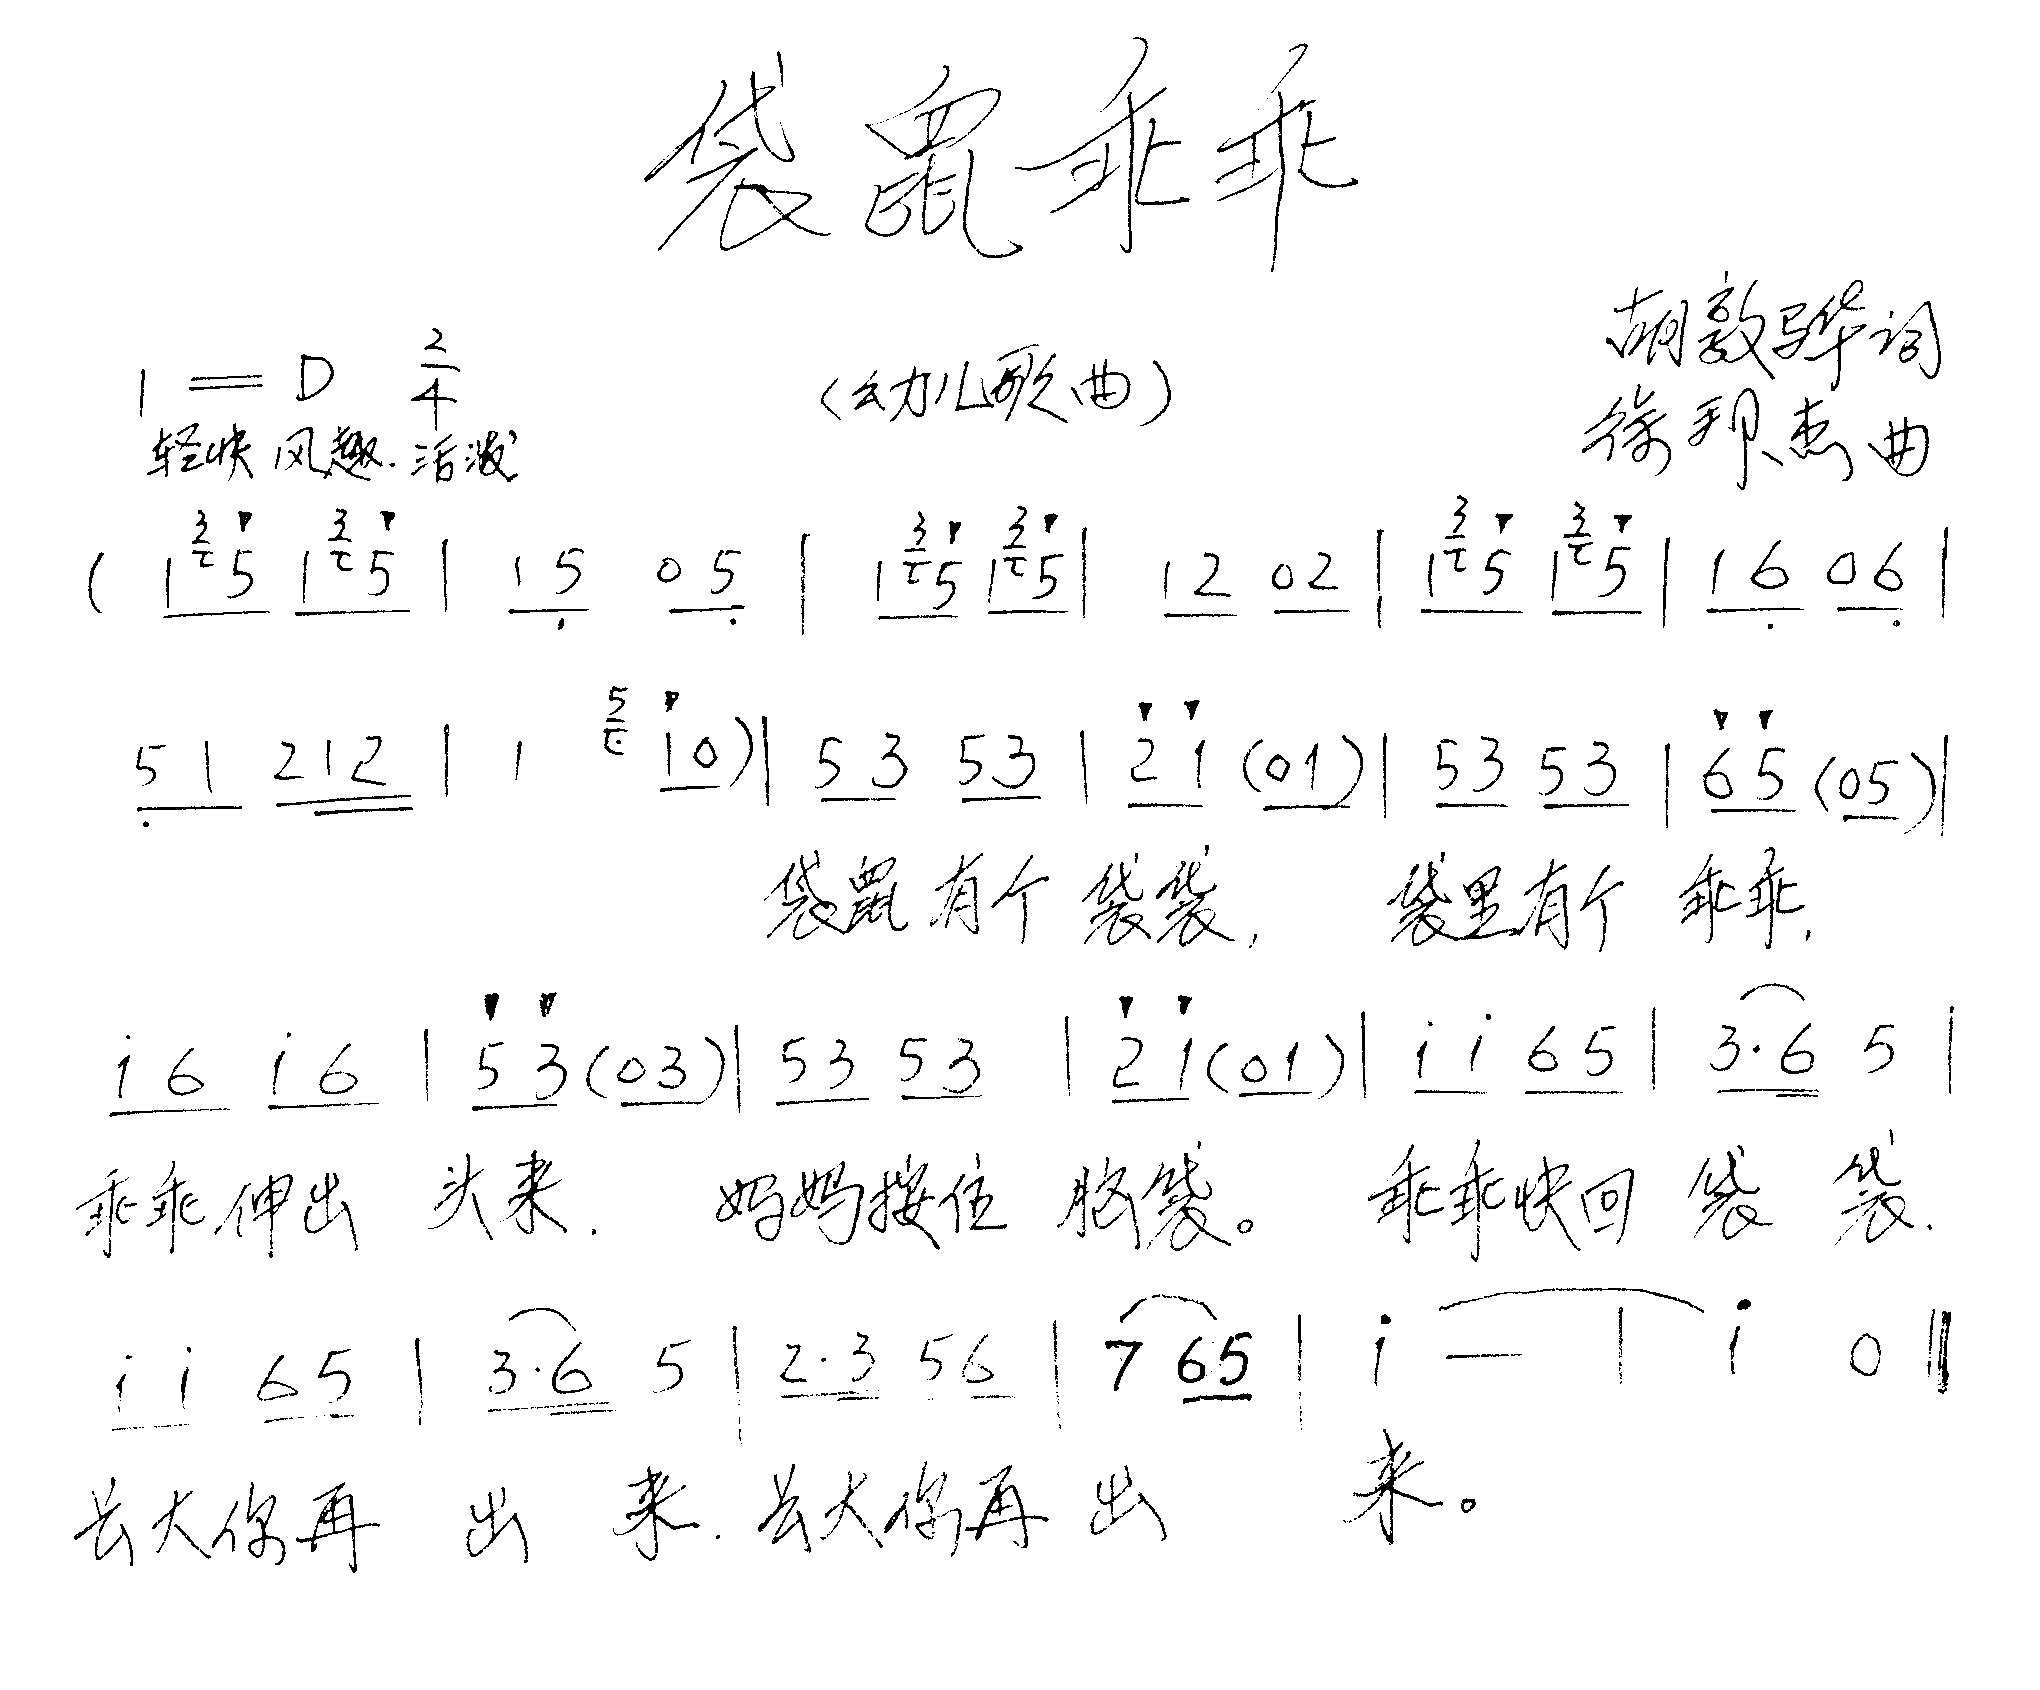 袋鼠乖乖
1=D 2/4 (幼儿歌曲) 胡敦骅词
轻快 风趣.活泼 徐邦杰曲
( 1 3 5 1 3 5 | 1 5 0 5 | 1 3 5 1 3 5 | 1 2 0 2 | 1 3 5 1 3 5 | 1 6 0 6 |
5 1 2 1 2 | 1 5 1 0 ) | 5 3 5 3 | 2 1 (0 1) | 5 3 5 3 | 6 5 (0 5) |
袋鼠有个 袋袋, 袋里有个 乖乖,
i 6 i 6 | 5 3 (0 3) | 5 3 5 3 | 2 1 (0 1) | i i 6 5 | 3·6 5 |
乖乖伸出 头来. 妈妈按住 脑袋。 乖乖快回 袋 袋.
i i 6 5 | 3·6 5 | 2·3 5 6 | 7 6 5 | i — | i 0 ‖
长大你再 出 来. 长大你再 出 来。